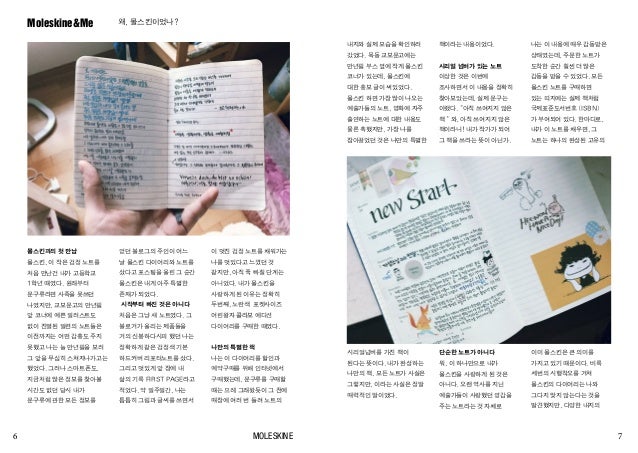 Moleskine&Me
왜, 몰스킨이었나?
몰스킨과의 첫 만남
몰스킨, 이 작은 검정 노트를
처음 만난건 내가 고등학교
1학년 때였다. 원래부터
문구류라면 사족을 못쓰던
나였지만, 교보문고의 만년필
앞 코너에 예쁜 일러스트도
없이 진열된 몰스킨 노트들은
이전까지는 어떤 감흥도 주지
못했고 나는 늘 만년필을 보러
그 앞을 무심히 스쳐지나가고는
했었다. 그러나 스마트폰도,
지금처럼 많은 정보를 찾아볼
시간도 없던 당시 내가
문구류에 관한 모든 정보를
얻던 블로그의 주인이 어느
날 몰스킨 다이어리와 노트를
샀다고 포스팅을 올린 그 순간
몰스킨은 내게 아주 특별한
존재가 되었다.
시작부터 빠진 것은 아니다
처음은 그냥 새 노트였다. 그
블로거가 올리는 제품들을
거의 신봉하다시피 했던 나는
정확하게 같은 검정색 기본
하드커버 리포터노트를 샀다.
그리고 멋있게 앞 장에 내
삶의 기록 FIRST PAGE라고
적었다. 약 일주일간, 나는
틈틈히 그림과 글씨를 쓰면서
이 멋진 검정 노트를 채워가는
나를 멋있다고 느꼈던 것
같지만, 아직 푹 빠질 단계는
아니었다. 내가 몰스킨을
사랑하게 된 이유는 정확히
두번째, 노란색 포켓사이즈
어린왕자 콜라보 에디션
다이어리를 구매한 때였다.
나만의 특별한 책
나는 이 다이어리를 할인과
예약구매를 위해 인터넷에서
구매했는데, 문구류를 구매할
때는 으레 그래왔듯이 그 전에
매장에 여러 번 들려 노트의
내지와 실제 모습을 확인하러
갔었다. 목동 교보문고에는
만년필 부스 옆에 작게 몰스킨
코너가 있는데, 몰스킨에
대한 홍보 글이 써있었다.
몰스킨 하면 가장 많이 나오는
예술가들의 노트, 영화에 자주
출연하는 노트에 대한 내용도
물론 혹했지만, 가장 나를
잡아끌었던 것은 나만의 특별한
책이라는 내용이었다.
시리얼 넘버가 있는 노트
이상한 것은 이번에
조사하면서 이 내용을 정확히
찾아보았는데, 실제 문구는
이랬다. "아직 쓰여지지 않은
책" 와, 아직 쓰여지지 않은
책이라니! 내가 작가가 되어
그 책을 쓰라는 듯이 아닌가.
나는 이 내용에 매우 감동받은
상태였는데, 주문한 노트가
도착한 순간 훨씬 더 많은
감동을 받을 수 있었다. 모든
몰스킨 노트를 구매하면
있는 띠지에는 실제 책처럼
국제표준도서번호 (ISBN)
가 부여되어 있다. 한마디로,
내가 이 노트를 채우면, 그
노트는 하나의 완성된 고유의
new Start
HEE WON!
HAVE A
NICE DAY!
시리얼넘버를 가진 책이
된다는 뜻이다. 내가 완성하는
나만의 책, 모든 노트가 사실은
그렇지만, 이라는 사실은 정말
매력적인 말이었다.
단순한 노트가 아니다
뭐, 이 하나만으로 내가
몰스킨을 사랑하게 된 것은
아니다. 오랜 역사를 지닌
예술가들이 사랑했던 영감을
주는 노트라는 것 자체로
이미 몰스킨은 큰 의미를
가지고 있기 때문이다. 비록
세번의 시행착오를 거쳐
몰스킨의 다이어리는 나와
그다지 맞지 않는다는 것을
발견했지만, 다양한 내지의
6
MOLESKINE
7